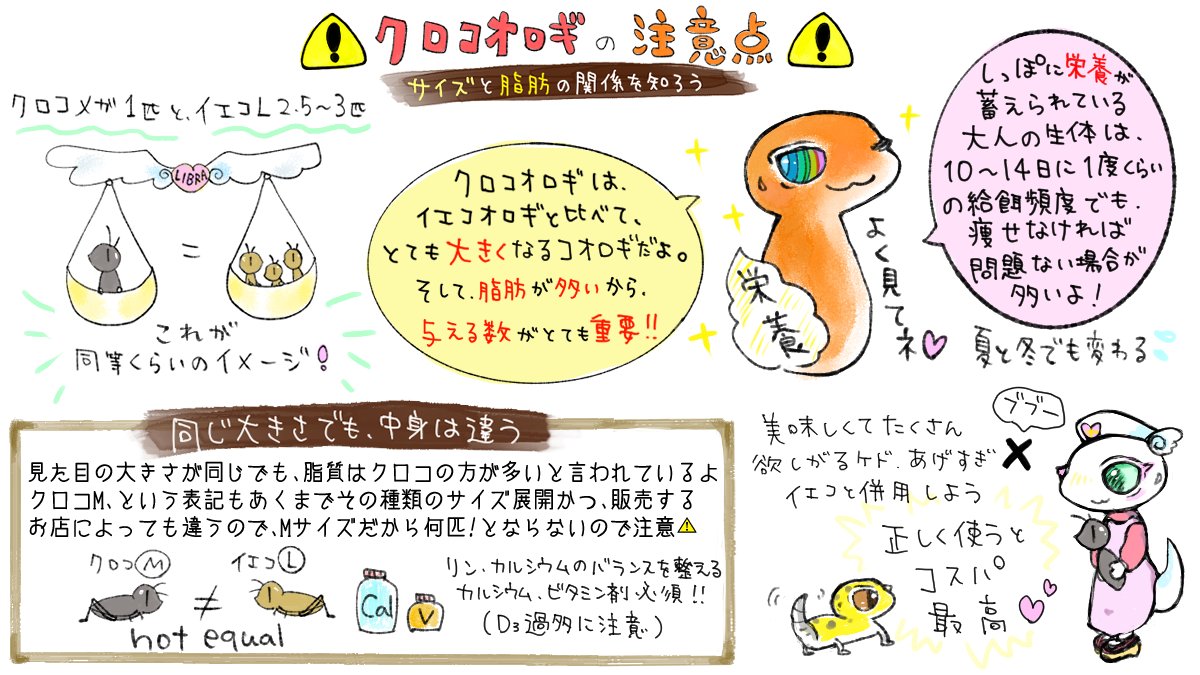 クロコオロギの注意点
サイズと脂肪の関係を知ろう
クロコMが1匹と、イエコL2.5〜3匹
LIBRA
=
これが
同等くらいのイメージ!
クロコオロギは、
イエコオロギと比べて、
とても大きくなるコオロギだよ。
そして、脂肪が多いから、
与える数がとても重要!!
栄養
よく見てネ
しっぽに栄養が
蓄えられている
大人の生体は、
10〜14日に1度くらい
の給餌頻度でも、
痩せなければ
問題ない場合が
多いよ!
夏と冬でも変わる
同じ大きさでも、中身は違う
見た目の大きさが同じでも、脂質はクロコの方が多いと言われているよ
クロコM、という表記もあくまでその種類のサイズ展開かつ、販売する
お店によっても違うので、Mサイズだから何匹!とならないので注意⚠
クロコM
イエコL
≠
not equal
Cal
V
リン、カルシウムのバランスを整える
カルシウム、ビタミン剤必須!!
(D3過多に注意)
ブブー
美味しくてたくさん
欲しがるケド、あげすぎ×
イエコと併用しよう
正しく使うと
コスパ
最高